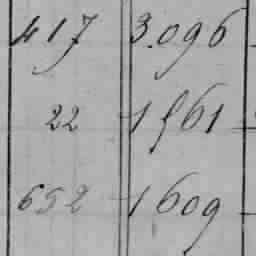 417 3.096
22 1561
652 1609